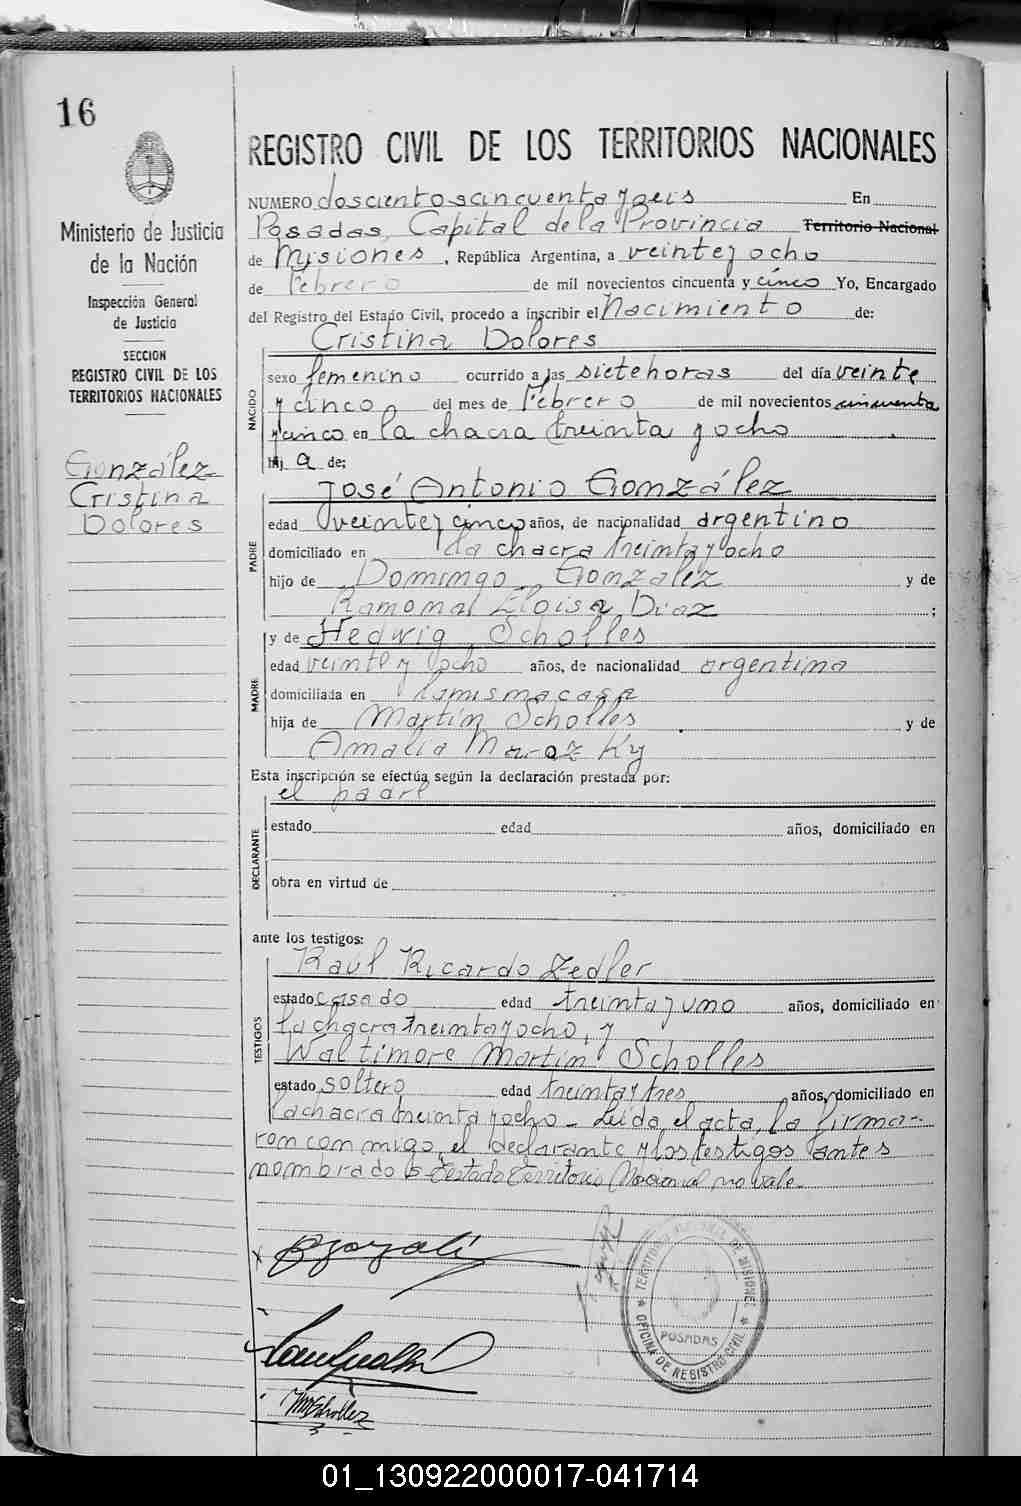 16
Ministerio de Justicia
de la Nación
Inspección General
de Justicia
SECCION
REGISTRO CIVIL DE LOS
TERRITORIOS NACIONALES
González
Cristina
Dolores
REGISTRO CIVIL DE LOS TERRITORIOS NACIONALES
NUMERO doscientos cincuenta y seis En
Posadas, Capital de la Provincia Territorio Nacional
de Misiones, República Argentina, a veinte y ocho
de febrero de mil novecientos cincuenta y cinco Yo, Encargado
del Registro del Estado Civil, procedo a inscribir el Nacimiento de:
NACIDO
Cristina Dolores
sexo femenino ocurrido a las siete horas del día veinte
y cinco del mes de febrero de mil novecientos cincuenta
y cinco en la chacra treinta y ocho
hij a de:
PADRE
José Antonio González
edad veinte y cinco años, de nacionalidad argentino
domiciliado en la chacra treinta y ocho
hijo de Domingo González y de
Ramona Eloisa Diaz ;
MADRE
y de Hedwig Scholles
edad veinte y ocho años, de nacionalidad argentina
domiciliada en la misma casa
hija de Martín Scholles y de
Amalia Maraz Ky
Esta inscripción se efectúa según la declaración prestada por:
DECLARANTE
el padre
estado edad años, domiciliado en
obra en virtud de
ante los testigos:
TESTIGOS
Raúl Ricardo Zedler
estado casado edad treinta y uno años, domiciliado en
la chacra treinta y ocho, y
Waltimore Martín Scholles
estado soltero edad treinta y tres años, domiciliado en
la chacra treinta y ocho - Leída el acta, la firma-
ron conmigo, el declarante y los testigos antes
nombrados - Testado Territorio Nacional no vale
TERRITORIO NACIONAL DE MISIONES
POSADAS
OFICINA DE REGISTRO CIVIL
01_130922000017-041714